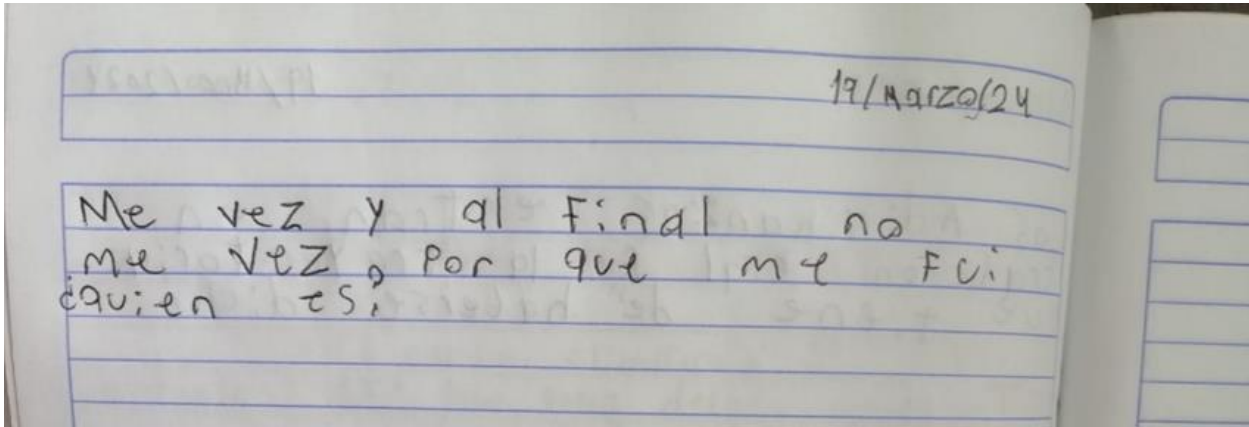 19/Marzo/24
Me vez y al Final no
me vez, Por que me Fui
¿quien es?